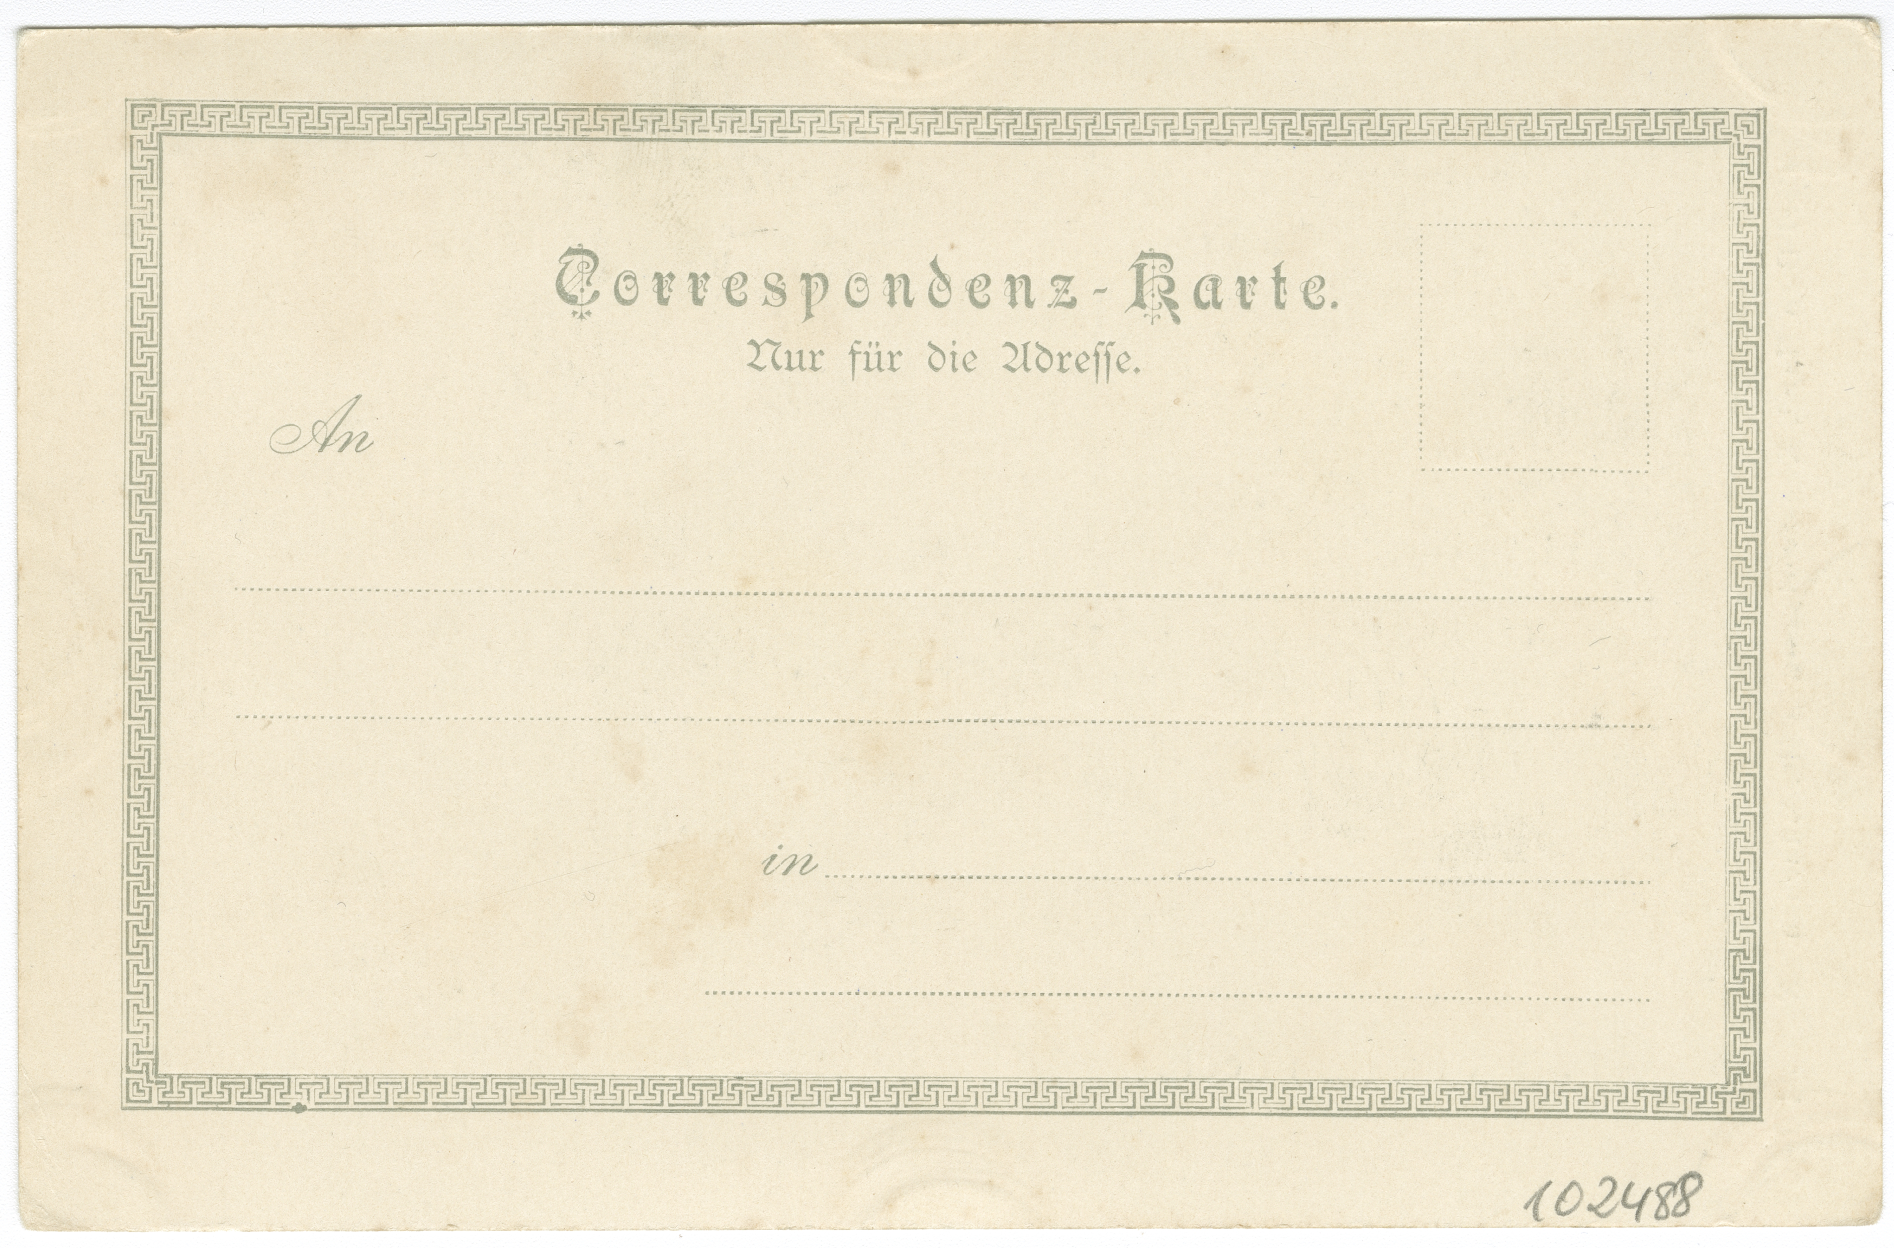 Correspondenz-Karte.
Nur für die Adresse.
An
in
102488